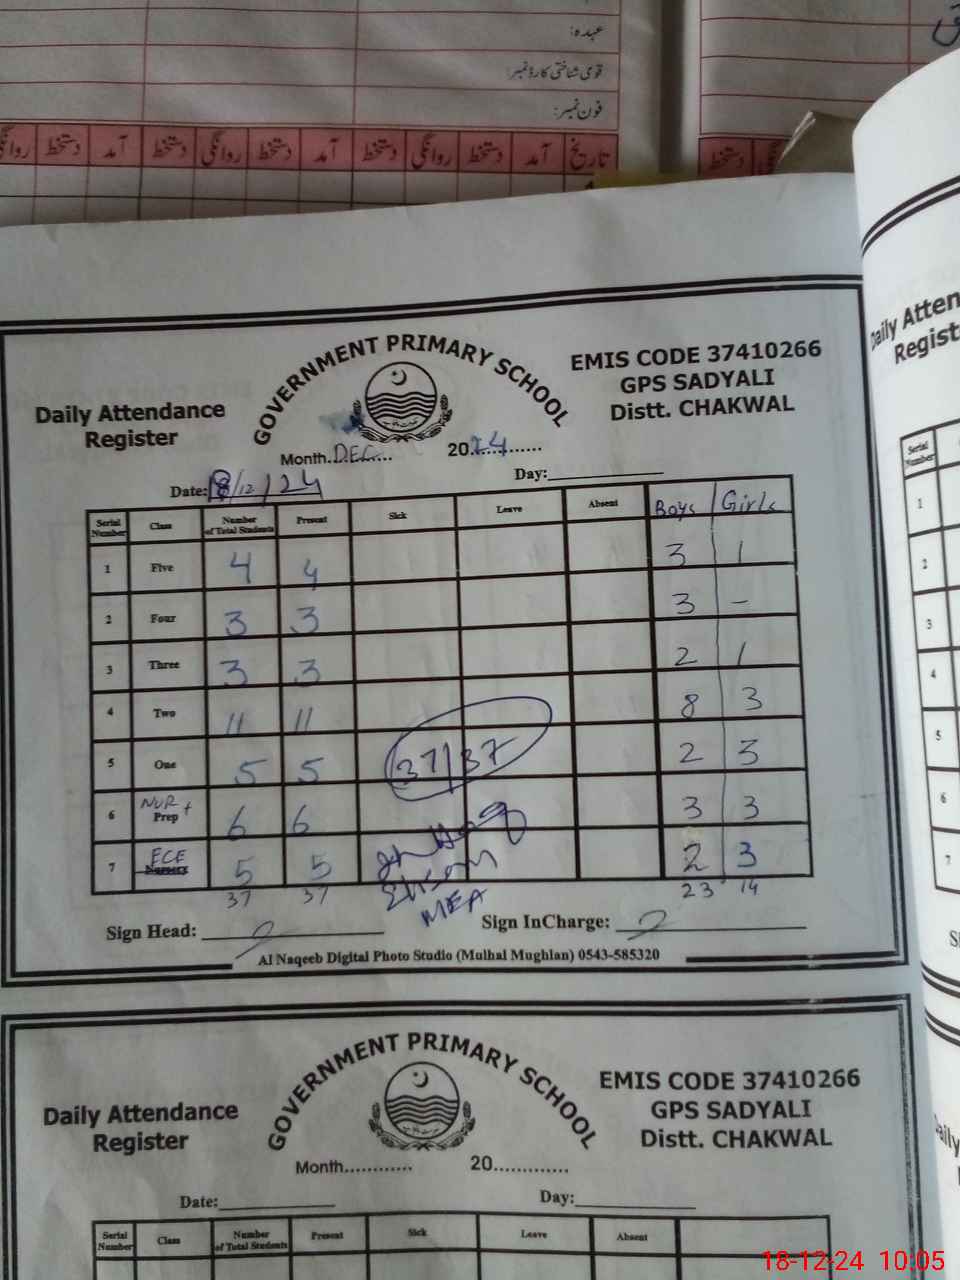 عہدہ:
قومی شناختی کارڈ نمبر:
فون نمبر:
تاریخ آمد دستخط روانگی دستخط آمد دستخط روانگی دستخط آمد دستخط روانگی
دستخط
Daily Attendance
Register
GOVERNMENT PRIMARY SCHOOL
EMIS CODE 37410266
GPS SADYALI
Distt. CHAKWAL
Month.DEC.... 2024......
Date: 18/12/24 Day:
Serial Number Class Number of Total Students Present Sick Leave Absent Boys Girls
1 Five 4 4 3 1
2 Four 3 3 3 -
3 Three 3 3 2 1
4 Two 11 11 8 3
5 One 5 5 37/37 2 3
6 NUR + Prep 6 6 3 3
7 ECE Nursery 5 5 2 3
37 37 MEA 23 14
Sign Head: Sign InCharge:
Al Naqeeb Digital Photo Studio (Mulhal Mughlan) 0543-585320
Daily Attendance
Register
GOVERNMENT PRIMARY SCHOOL
EMIS CODE 37410266
GPS SADYALI
Distt. CHAKWAL
Month............ 20.............
Date: Day:
Serial Number Class Number of Total Students Present Sick Leave Absent
Daily Atten
Regist
Serial Number
1
2
3
4
5
6
7
18-12-24 10:05